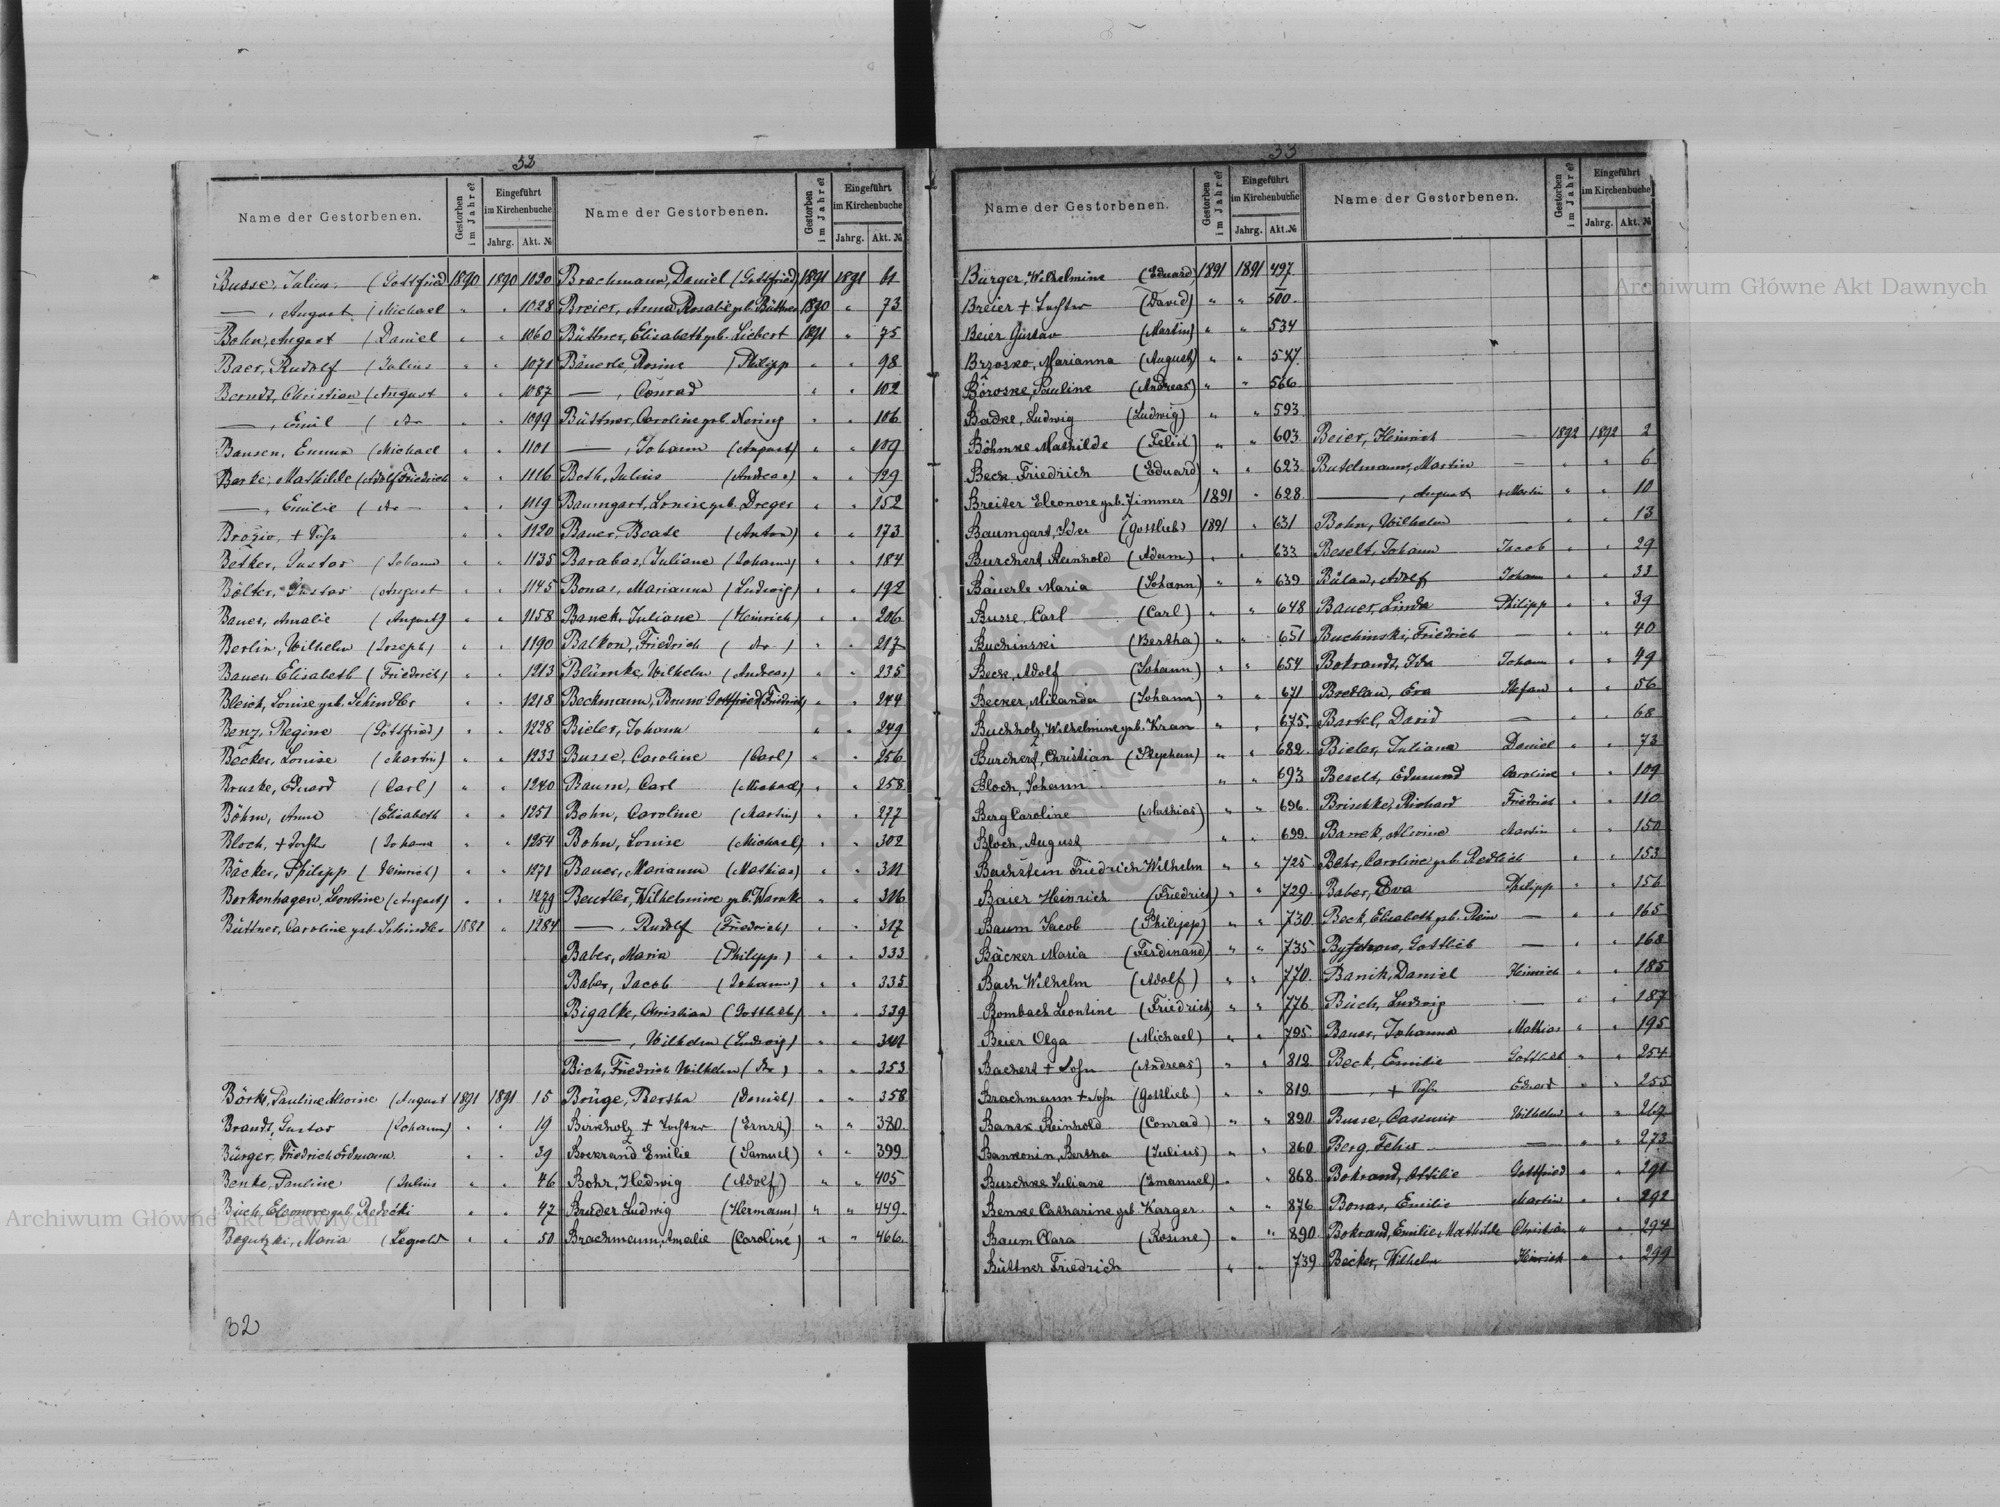 32
Name der Gestorbenen. Gestorben im Jahre? Eingeführt im Kirchenbuche Jahrg. Akt. №
Busse, Julius (Gottfried 1890 1890 1020
—, August (Michael " " 1028
Bohn, August (Daniel " " 1060
Baer, Rudolf (Julius " " 1071
Berndt, Christian (August " " 1087
—, Emil (do " " 1099
Bansen, Emma (Michael " " 1101
Barke, Mathilde (Adolf Friedrich " " 1116
—, Emilie (do — " " 1119
Brozio, + Sohn " " 1120
Betker, Gustav (Johann " " 1135
Bölter, Gustav (August " " 1145
Bauer, Amalie (August) " " 1158
Berlin, Wilhelm (Joseph) " " 1190
Bauer, Elisabeth (Friedrich) " " 1213
Bleich, Louise geb. Schindler " " 1218
Benz, Regine (Gottfried) " " 1228
Becker, Louise (Martin) " " 1233
Bruske, Eduard (Carl) " " 1240
Böhm, Anna (Elisabeth " " 1251
Bloch, + Tochter (Johann " " 1254
Bäcker, Philipp (Heinrich) " " 1271
Borkenhagen, Leontine (August) " " 1279
Büttner, Caroline geb. Schindler 1881 " 1284
Börk, Pauline Alwine (August 1891 1891 15
Brandt, Gustav (Johann) " " 19
Bürger, Friedrich Erdmann " " 39
Benke, Pauline (Julius " " 46
Büch, Eleonore geb. Redetzki " " 47
Bogutzki, Maria (Leopold " " 50
32
Name der Gestorbenen. Gestorben im Jahre? Eingeführt im Kirchenbuche Jahrg. Akt. №
Brachmann, Daniel (Gottfried) 1891 1891 61
Breier, Anna Rosalie geb. Büttner 1890 " 73
Büttner, Elisabeth geb. Liebert 1891 " 75
Bäuerle, Rosine (Philipp " " 98
—, Conrad " " 102
Büttner, Caroline geb. Nering " " 106
—, Johann (August) " " 109
Both, Julius (Andreas) " " 129
Baumgart, Louise geb. Dreger " " 152
Bauer, Beate (Anton) " " 173
Barabas, Juliane (Johann) " " 184
Bonas, Marianna (Ludwig) " " 192
Banek, Juliane (Heinrich) " " 206
Balkon, Friedrich (do) " " 217
Blümke, Wilhelm (Andreas) " " 235
Beckmann, Bruno Gottfried (Friedrich) " " 244
Bieler, Johann " " 249
Busse, Caroline (Carl) " " 256
Baum, Carl (Michael) " " 258
Bohn, Caroline (Martin) " " 277
Bohn, Louise (Michael) " " 302
Bauer, Marianna (Mathias) " " 311
Beutler, Wilhelmine geb. Warnke " " 316
—, Rudolf (Friedrich) " " 317
Baber, Maria (Philipp) " " 333
Baber, Jacob (Johann) " " 335
Bigalke, Christian (Gottlieb) " " 339
—, Wilhelm (Ludwig) " " 341
Bich, Friedrich Wilhelm (do) " " 353
Brüge, Bertha (Daniel) " " 358
Birkholz + Tochter (Ernst) " " 380
Bockrand Emilie (Samuel) " " 399
Bohr, Hedwig (Adolf) " " 405
Bruder Ludwig (Hermann) " " 449
Brachmann, Amalie (Caroline) " " 466
33
Name der Gestorbenen. Gestorben im Jahre? Eingeführt im Kirchenbuche Jahrg. Akt. №
Bürger, Wilhelmine (Eduard) 1891 1891 497
Breier + Tochter (David) " " 500
Beier Gustav (Martin) " " 534
Brzosko, Marianna (August) " " 547
Boroske, Pauline (Andreas) " " 566
Badke, Ludwig (Ludwig) " " 593
Böhmke Mathilde (Felix) " " 603
Beck Friedrich (Eduard) " " 623
Breiter Eleonore geb. Zimmer 1891 " 628
Baumgart, Ida (Gottlieb) 1891 " 631
Burchert Reinhold (Adam) " " 633
Bäuerle Maria (Johann) " " 639
Busse, Carl (Carl) " " 648
Buchinski (Bertha) " " 651
Beck, Adolf (Johann) " " 654
Becker, Milanda (Johann) " " 671
Buchholz, Wilhelmine geb. Kran " " 675
Burchert, Christian (Stephan) " " 682
Bloch, Johann " " 693
Berg Caroline (Mathias) " " 696
Bloch, August " " 699
Bachstein Friedrich Wilhelm " " 725
Baier Heinrich (Friedrich) " " 729
Baum Jacob (Philipp) " " 730
Bäcker Maria (Ferdinand) " " 735
Bach Wilhelm (Adolf) " " 770
Bombach Leontine (Friedrich) " " 776
Beier Olga (Michael) " " 795
Bachert + Sohn (Andreas) " " 812
Brachmann + Sohn (Gottlieb) " " 819
Banek Reinhold (Conrad) " " 820
Bankonin, Bertha (Julius) " " 860
Buschke Juliane (Emanuel) " " 868
Benke Catharine geb. Karger " " 876
Baum Clara (Rosine) " " 890
Büttner Friedrich " " 739
Name der Gestorbenen. Gestorben im Jahre? Eingeführt im Kirchenbuche Jahrg. Akt. №
Beier, Heinrich — 1892 1892 2
Butelmann, Martin — " " 6
—, August + Martin " " 10
Bohn, Wilhelm — " " 13
Beselt, Johann Jacob " " 29
Bülau, Adolf Johann " " 33
Bauer, Linda Philipp " " 39
Buchinski, Friedrich — " " 40
Bokrandt, Ida Johann " " 49
Bredlau, Eva Stefan " " 56
Bartel, David — " " 68
Bieler, Juliana Daniel " " 73
Beselt, Edmund Caroline " " 109
Brischke, Richard Friedrich " " 110
Banek, Alwine Martin " " 150
Behr, Caroline geb. Redlich " " 153
Baber, Eva Philipp " " 156
Beck, Elisabeth geb. Rein — " " 165
Gottlieb — " " 168
Banik, Daniel Heinrich " " 185
Büch, Ludwig — " " 187
Bauer, Johanna Mathias " " 195
Beck, Emilie Gottlieb " " 254
— + Sohn Eduard " " 255
Busse, Casimir Wilhelm " " 267
Berg, Felix — " " 273
Bokrand, Ottilie Gottfried " " 291
Bonas, Emilie Martin " " 292
Bokrand, Emilie Mathilde Christian " " 294
Becker, Wilhelm Heinrich " " 299
Archiwum Główne Akt Dawnych
Archiwum Główne Akt Dawnych